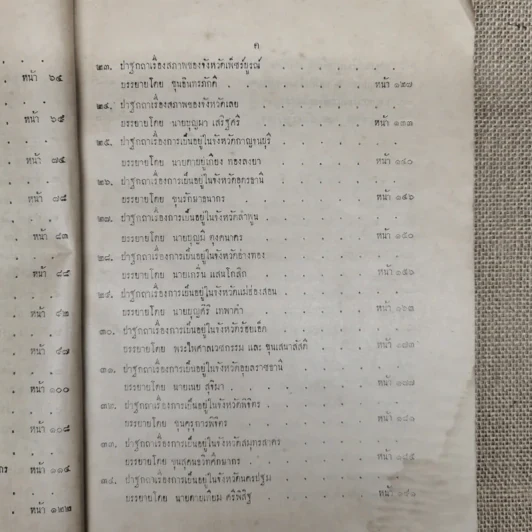 หน้า ๖๔
หน้า ๖๘
หน้า ๗๔
หน้า ๗๘
หน้า ๘๓
หน้า ๘๘
หน้า ๙๒
หน้า ๙๗
หน้า ๑๐๐
หน้า ๑๐๘
กร หน้า ๑๑๔
หน้า ๑๒๒
ค
๒๓. ปาฐกถาเรื่องสภาพของจังหวัดเพ็ชร์บูรณ์
บรรยายโดย ขุนอินทรภักดี หน้า ๑๒๗
๒๔. ปาฐกถาเรื่องสภาพของจังหวัดเลย
บรรยายโดย นายบุญมา เสริฐศรี หน้า ๑๓๓
๒๕. ปาฐกถาเรื่องการเป็นอยู่ในจังหวัดกาญจนบุรี
บรรยายโดย หน้า ๑๔๐
๒๖. ปาฐกถาเรื่องการเป็นอยู่ในจังหวัดอุดรธานี
บรรยายโดย ขุนรักษาธนากร หน้า ๑๔๖
๒๗. ปาฐกถาเรื่องการเป็นอยู่ในจังหวัดลำพูน
บรรยายโดย นายบุญมี หน้า ๑๕๐
๒๘. ปาฐกถาเรื่องการเป็นอยู่ในจังหวัดอ่างทอง
บรรยายโดย นายเกริ่น แสนโกสิก หน้า ๑๕๖
๒๙. ปาฐกถาเรื่องการเป็นอยู่ในจังหวัดแม่ฮ่องสอน
บรรยายโดย นายบุญศิริ เทพาคำ หน้า ๑๖๓
๓๐. ปาฐกถาเรื่องการเป็นอยู่ในจังหวัดร้อยเอ็ด
บรรยายโดย พระไพศาลเวชกรรม และ ขุนเสนาสัสดี หน้า ๑๗๓
๓๑. ปาฐกถาเรื่องการเป็นอยู่ในจังหวัดอุบลราชธานี
บรรยายโดย นายเนย สุจิมา หน้า ๑๗๗
๓๒. ปาฐกถาเรื่องการเป็นอยู่ในจังหวัดพิจิตร
บรรยายโดย ขุนดรุการพิจิตร หน้า ๑๘๑
๓๓. ปาฐกถาเรื่องการเป็นอยู่ในจังหวัดสมุทรสาคร
บรรยายโดย หน้า ๑๘๕
๓๔. ปาฐกถาเรื่องการเป็นอยู่ในจังหวัดนครปฐม
บรรยายโดย หน้า ๑๙๑